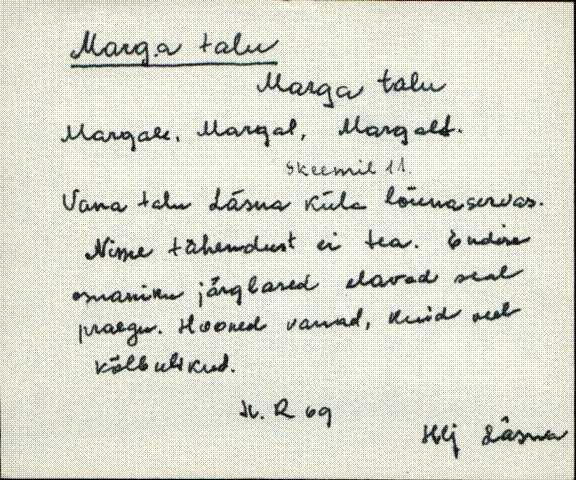 Marga talu
Marga talu
Margale, Margal, Margalt.
skeemil 11.
Vana talu Läsna küla lõunaservas.
Nime tähendust ei tea. Endise
omaniku järglased elavad seal
praegu. Hooned vanad, kuid veel
kõlbulikud.
H. R 69
Hlj Läsna